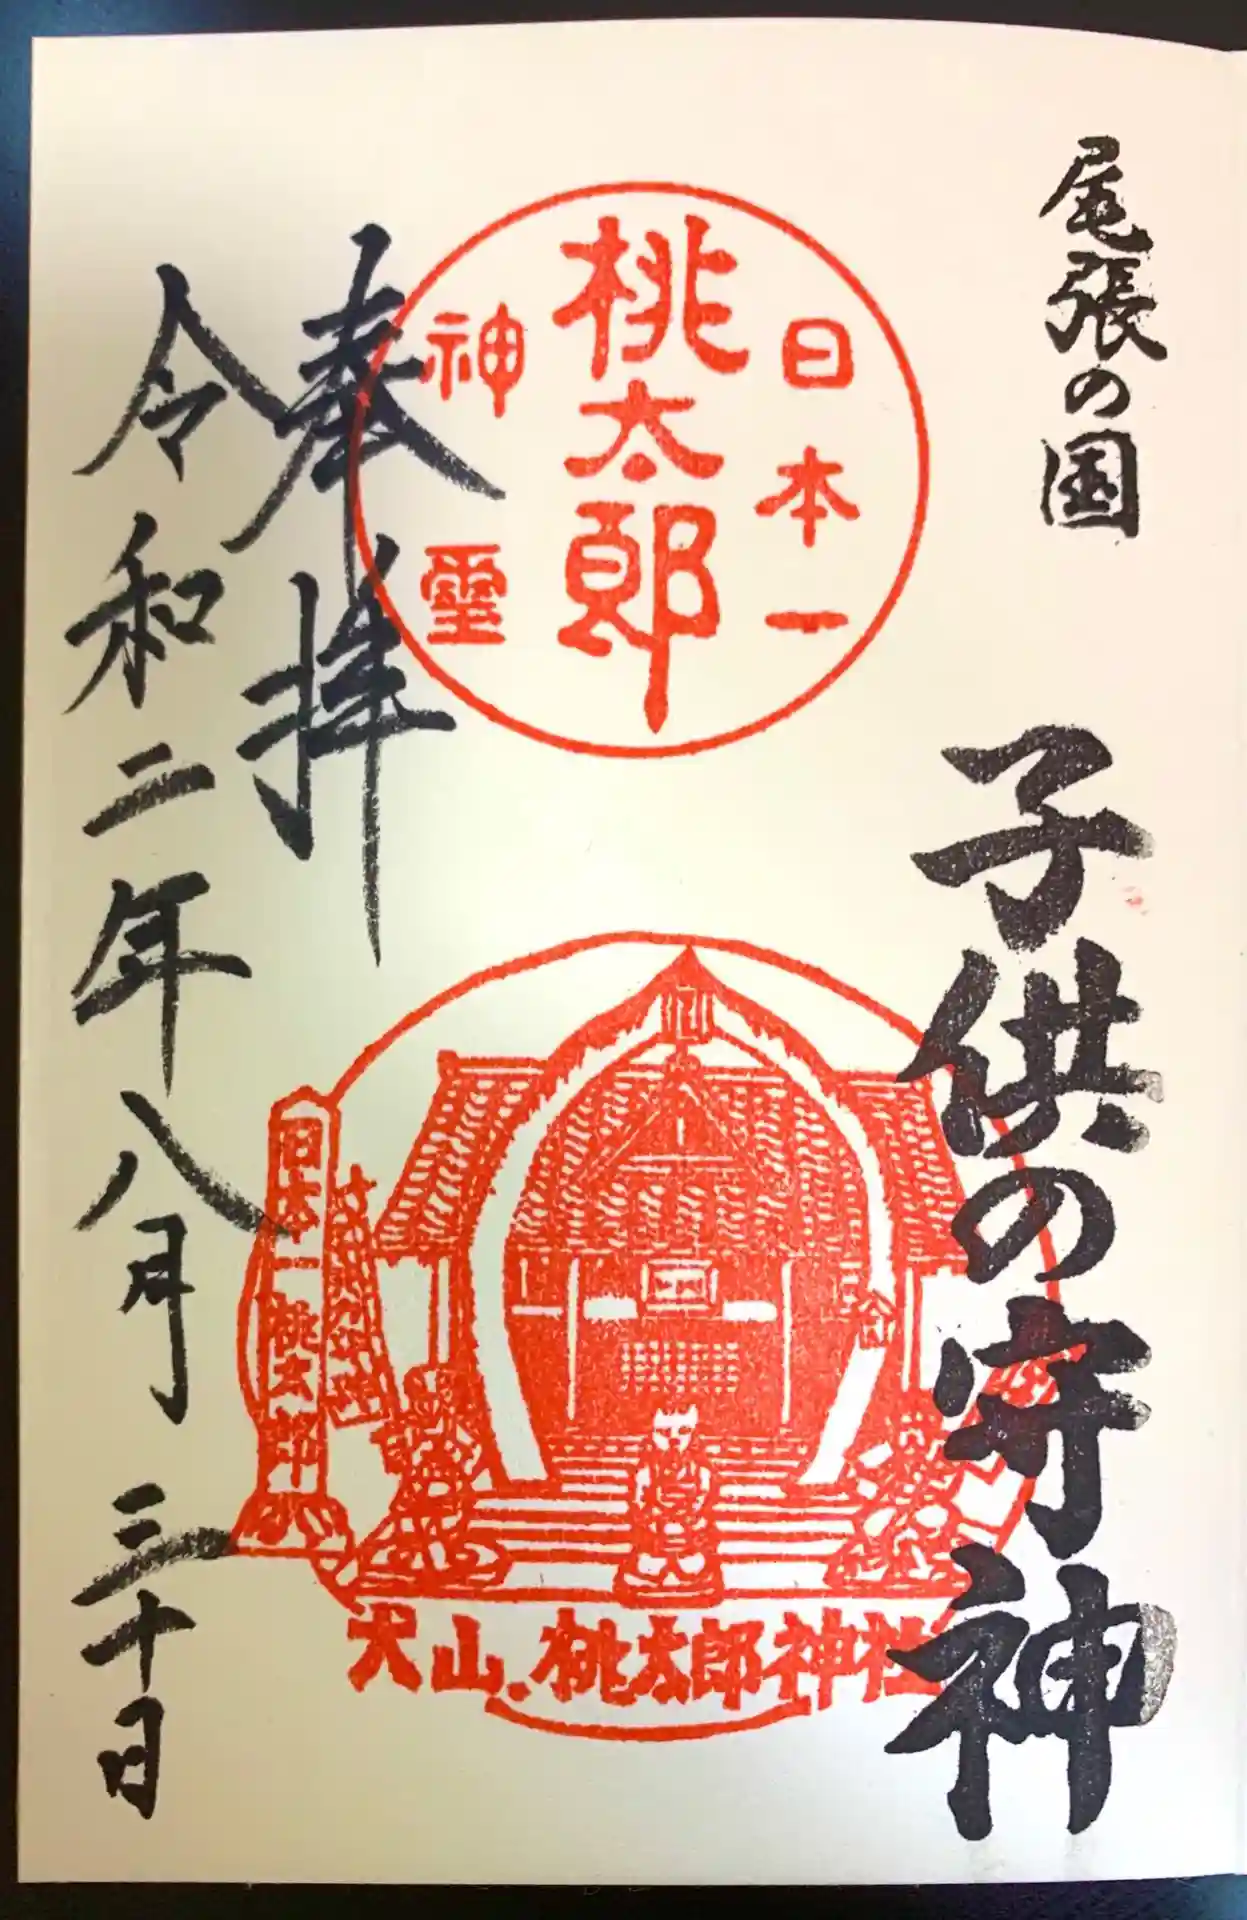 尾張の国
子供の守神
日本一
桃太郎
神霊
奉拝
令和二年八月三十日
日本一桃太郎
犬山.桃太郎神社